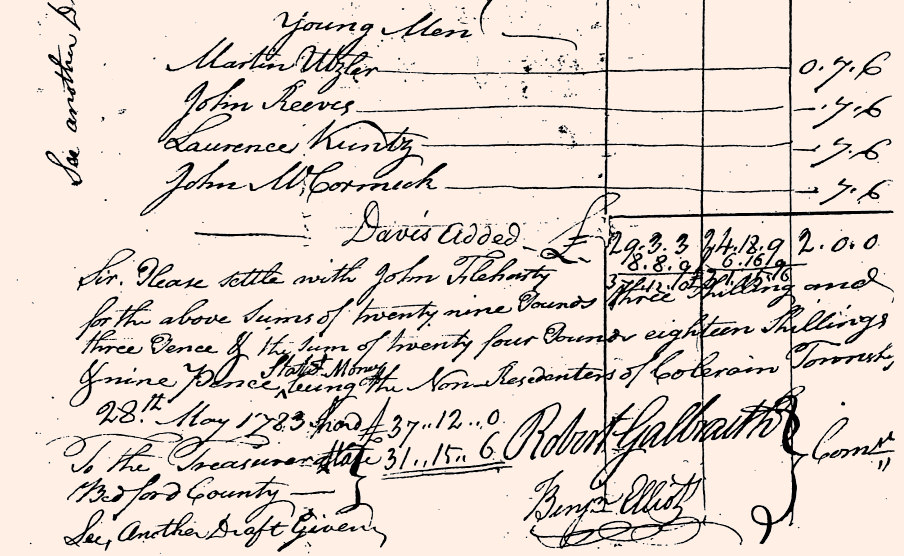 See another D
Young Men
Martin Utzler 0.7.6
John Reeves .7.6
Laurence Kuntz .7.6
John McCormeck .7.6
Davis added £ 29.3.3 24.18.9 2.0.0
8.8.9 6.16.9
Sir. Please settle with John Fleharty
for the above sums of twenty nine Pounds three Shilling and
three Pence & the sum of twenty four Pounds eighteen Shillings
& nine Pence State Money being the Non-Residenters of Colerain Township
28th May 1783 hard £ 37..12..0 Robert Galbraith
To the Treasurer of State 31..15..6 Comrs
Bedford County Benjn Elliot
See, Another Draft Given